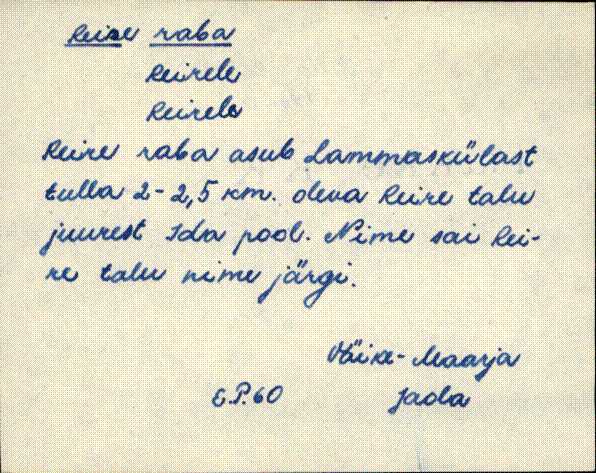 Reire raba
Reirele
Reirele
Reire raba asub Lammaskülast
tulla 2-2,5 km. oleva Reire talu
juurest Ida pool. Nime sai Rei-
re talu nime järgi.
Väike-Maarja
E.P.60 Jaola